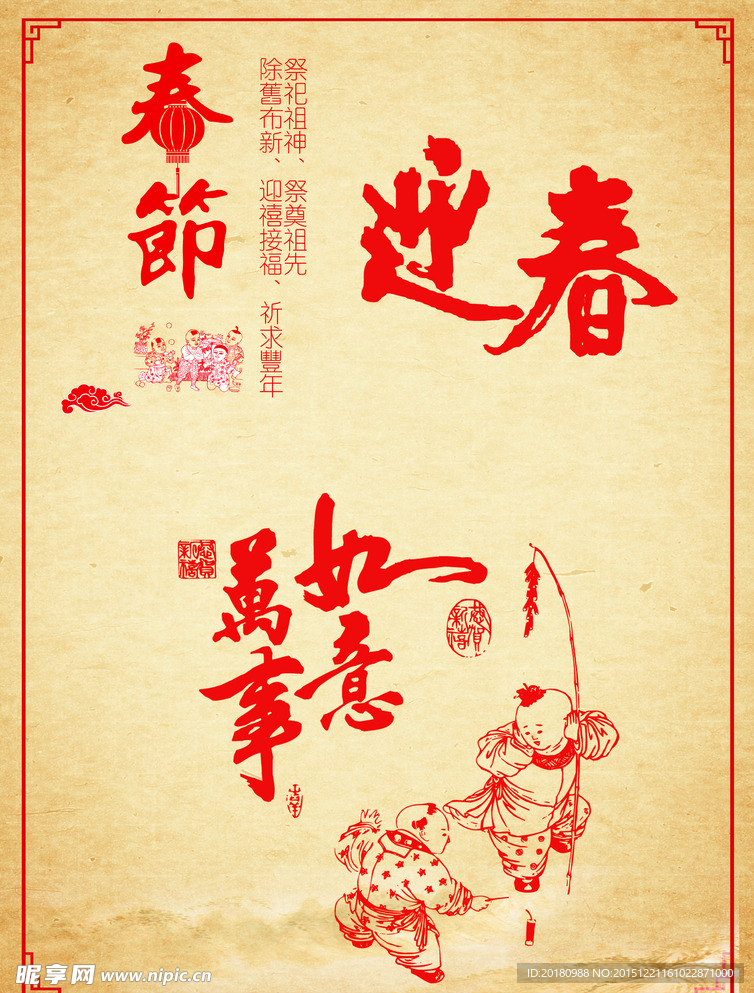 春節
祭祀祖神、祭奠祖先
除舊布新、迎禧接福、祈求豐年
迎春
萬事
如意
恭賀新禧
恭賀新禧
昵享网 www.nipic.cn
ID:20180988 NO:20151221161022871000